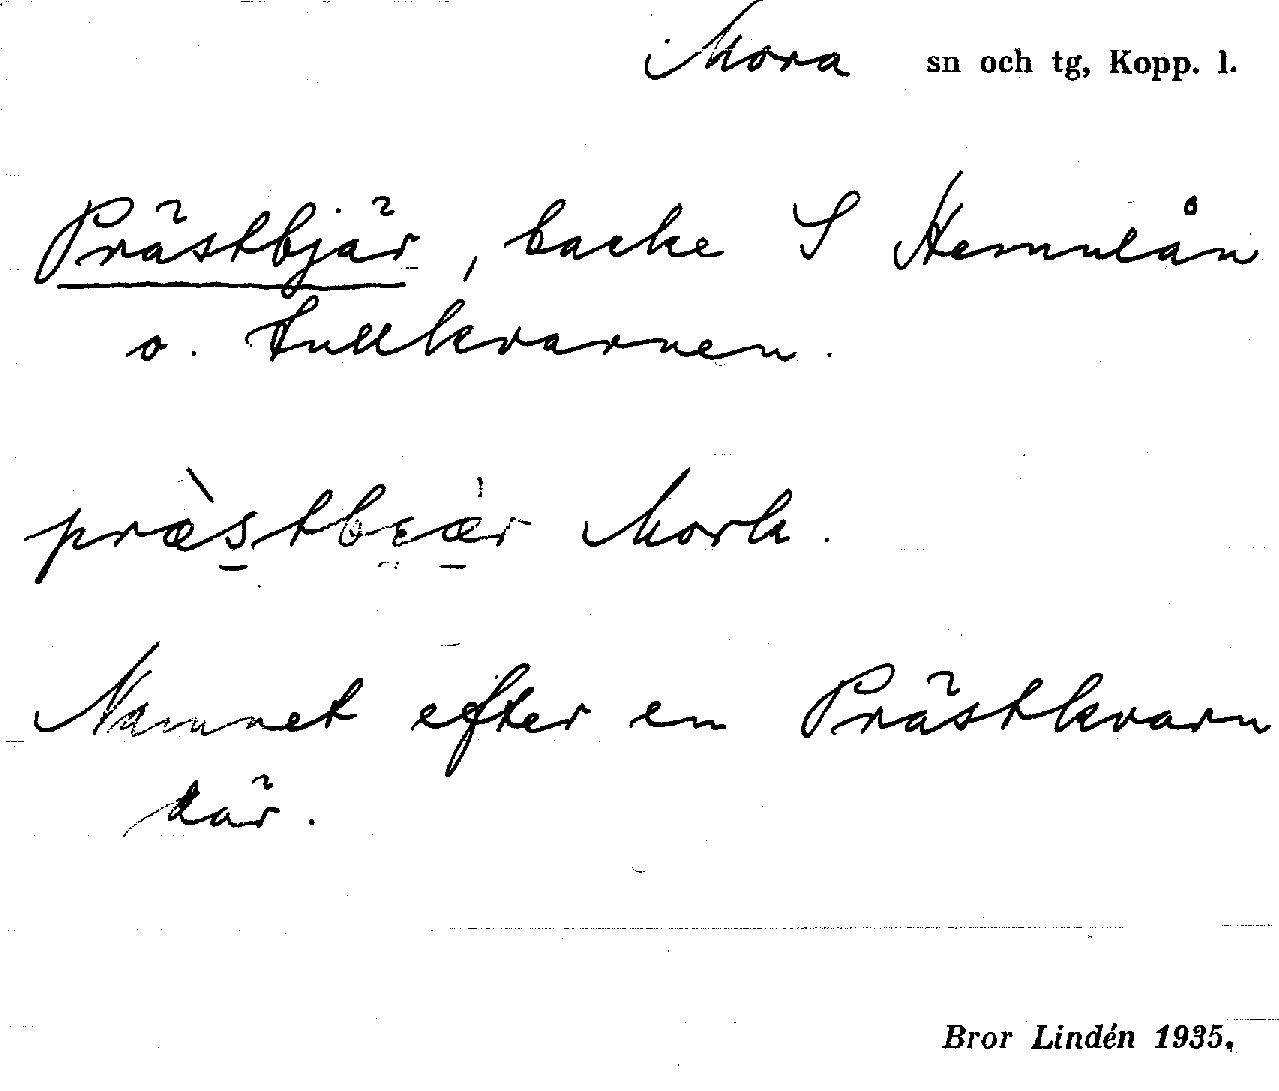 Mora sn och tg, Kopp. l.
Prästbjär, backe S Hemulån
o. Tullkvarnen.
Mork.
Namnet efter en Prästkvarn
där.
Bror Lindén 1935.